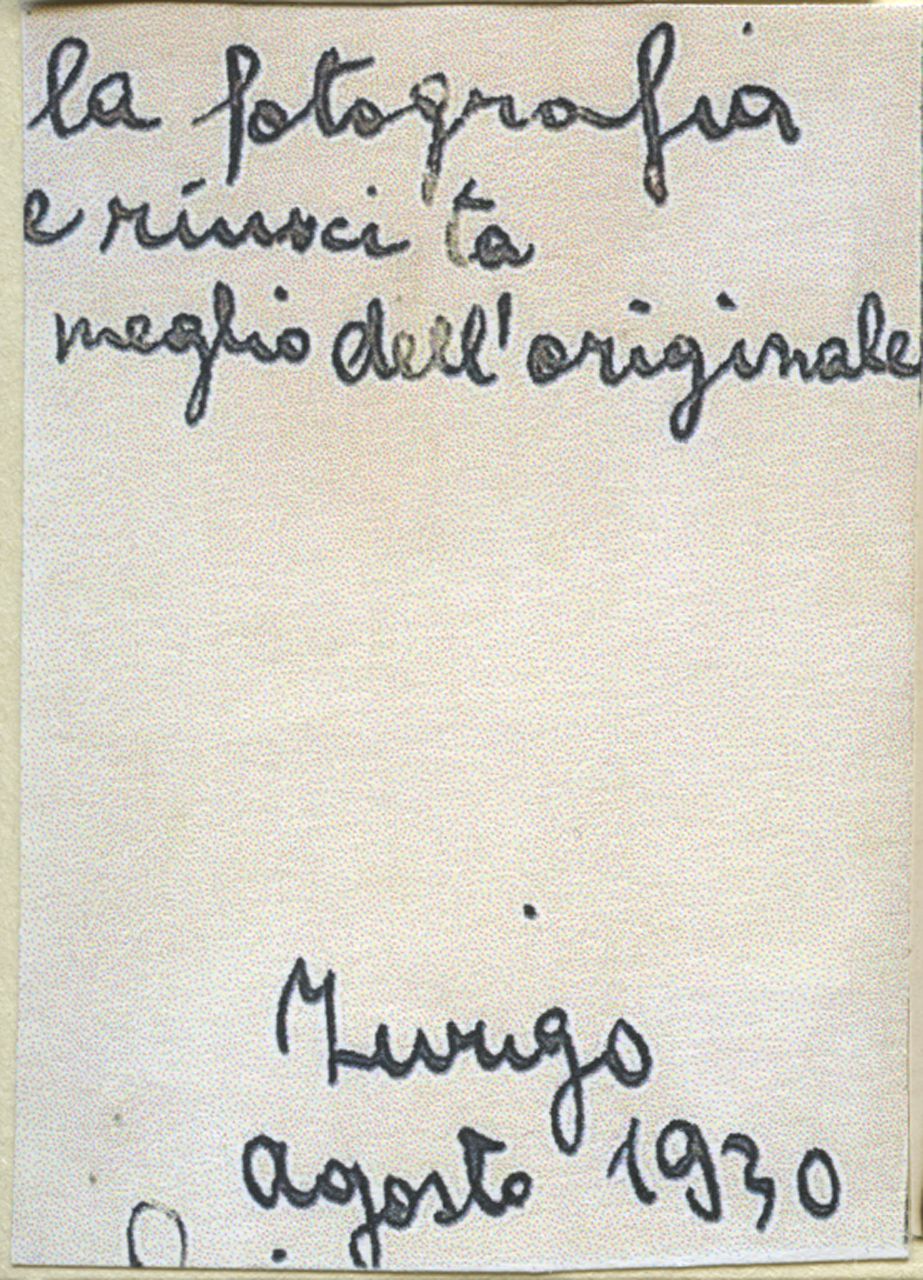 la fotografia
e riusci ta
meglio dell'originale
Zurigo
agosto 1930